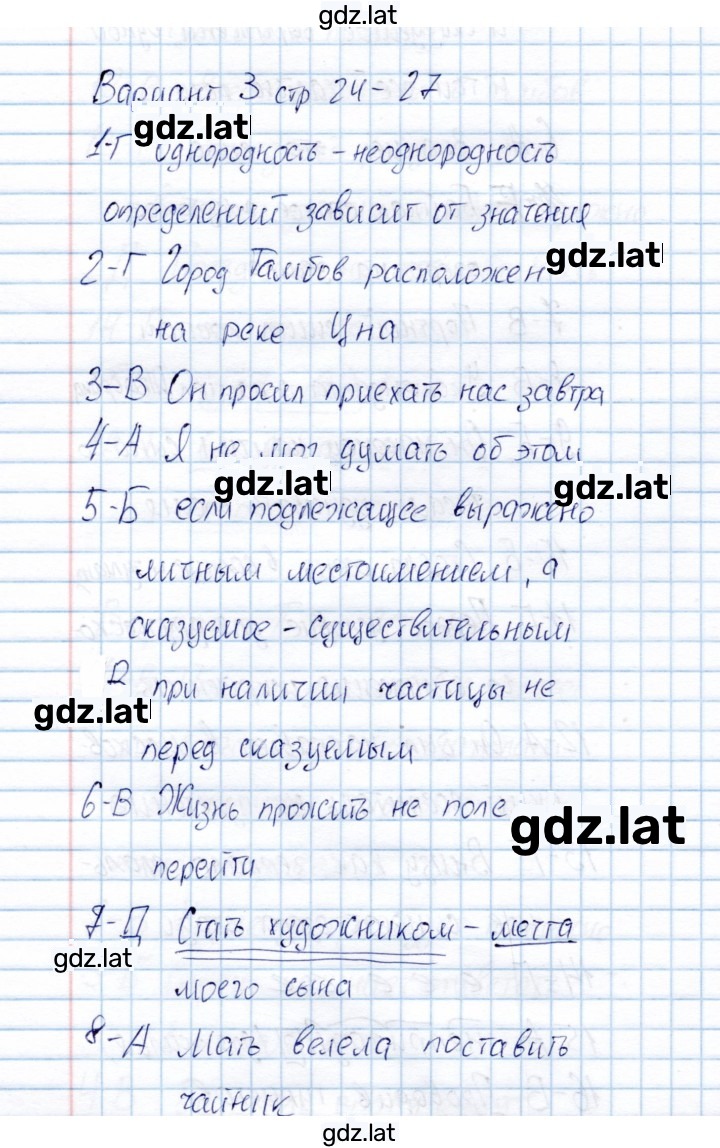 gdz.lat
Вариант 3 стр 24-27
gdz.lat
1-Г однородность - неоднородность
определений зависит от значения
gdz.lat
2-Г Город Тамбов расположен
на реке Цна
3-В Он просил приехать нас завтра
4-А Я не мог думать об этом
gdz.lat
gdz.lat
5-Б если подлежащее выражено
личным местоимением, а
сказуемое - существительным
при наличии частицы не
gdz.lat
перед сказуемым
6-В Жизнь прожить не поле
gdz.lat
перейти
7-Д Стать художником - мечта
gdz.lat
моего сына
8-А Мать велела поставить
чайник
gdz.lat